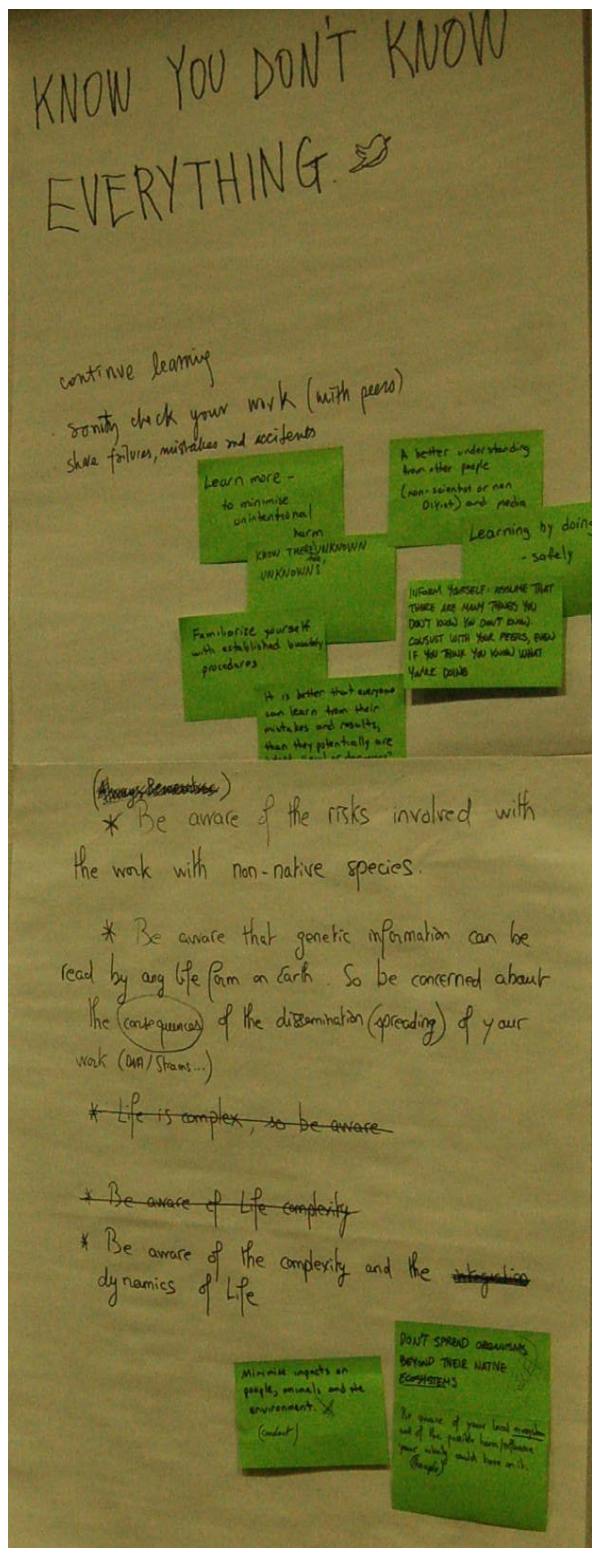 KNOW YOU DON'T KNOW
EVERYTHING.
continue learning
sanity check your work (with peers)
share failures, mistakes and accidents
Learn more -
to minimise
unintentional
harm
A better understanding
from other people
(non-scientist or non
DIYist) and media
Learning by doing
- safely
KNOW THERE ARE UNKNOWN
UNKNOWNS
INFORM YOURSELF: ASSUME THAT
THERE ARE MANY THINGS YOU
DON'T KNOW YOU DON'T KNOW.
CONSULT WITH YOUR PEERS, EVEN
IF YOU THINK YOU KNOW WHAT
YOU'RE DOING
Familiarize yourself
with established biosafety
procedures
It is better that everyone
can learn from their
mistakes and results,
than they potentially are
(Always Remember)
* Be aware of the risks involved with
the work with non-native species.
* Be aware that genetic information can be
read by any life form on Earth. So be concerned about
the (consequences) of the dissemination (spreading) of your
work (DNA/Strains...)
* Life is complex, so be aware
* Be aware of Life complexity
* Be aware of the complexity and the integration
dynamics of Life
Minimise impacts on
people, animals and the
environment.
(conduct)
DON'T SPREAD ORGANISMS
BEYOND THEIR NATIVE
ECOSYSTEMS
Be aware of your local ecosystem
and of the possible harm/influence
your activity could have on it.